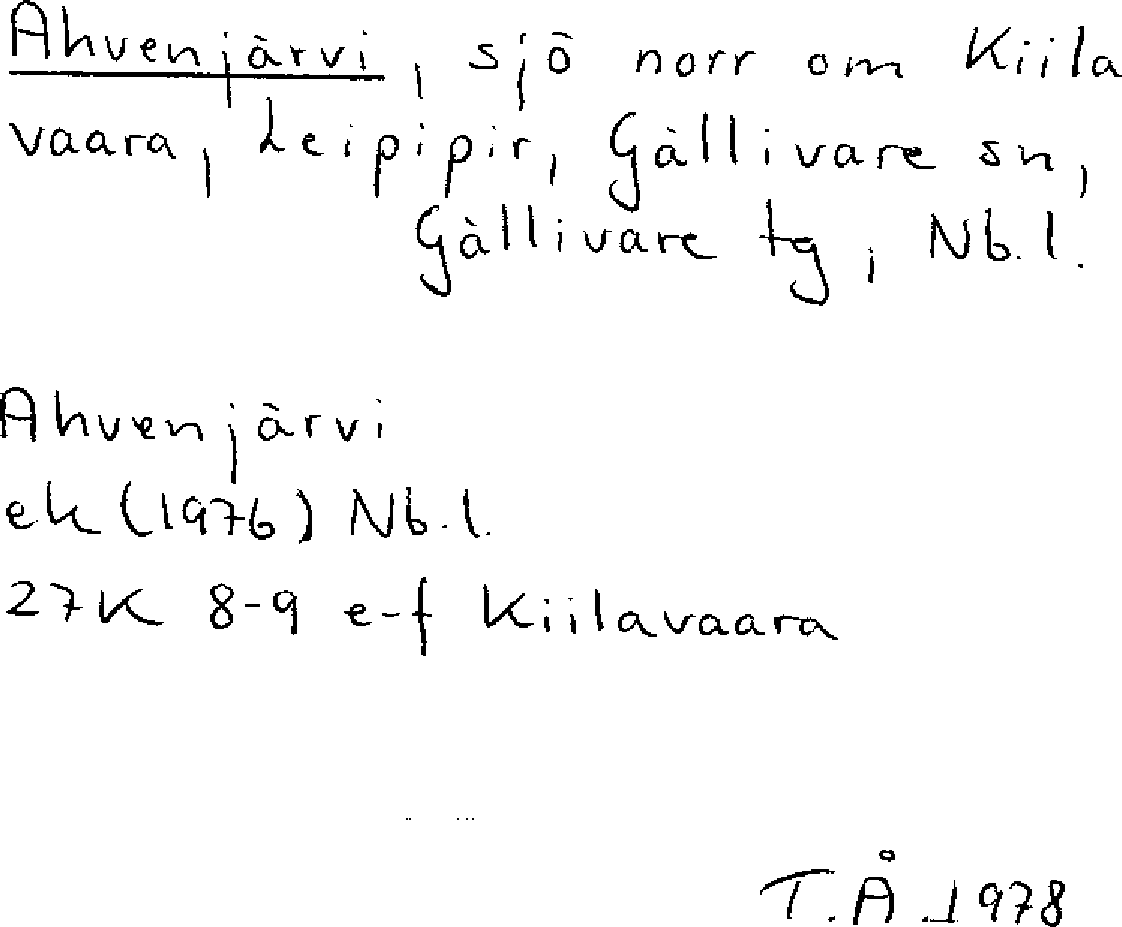 Ahvenjärvi, sjö norr om Kiila
vaara, Leipipir, Gällivare sn,
Gällivare tg, Nb.l.
Ahvenjärvi
ek (1976) Nb.l.
27K 8-9 e-f Kiilavaara
T.Å.1978